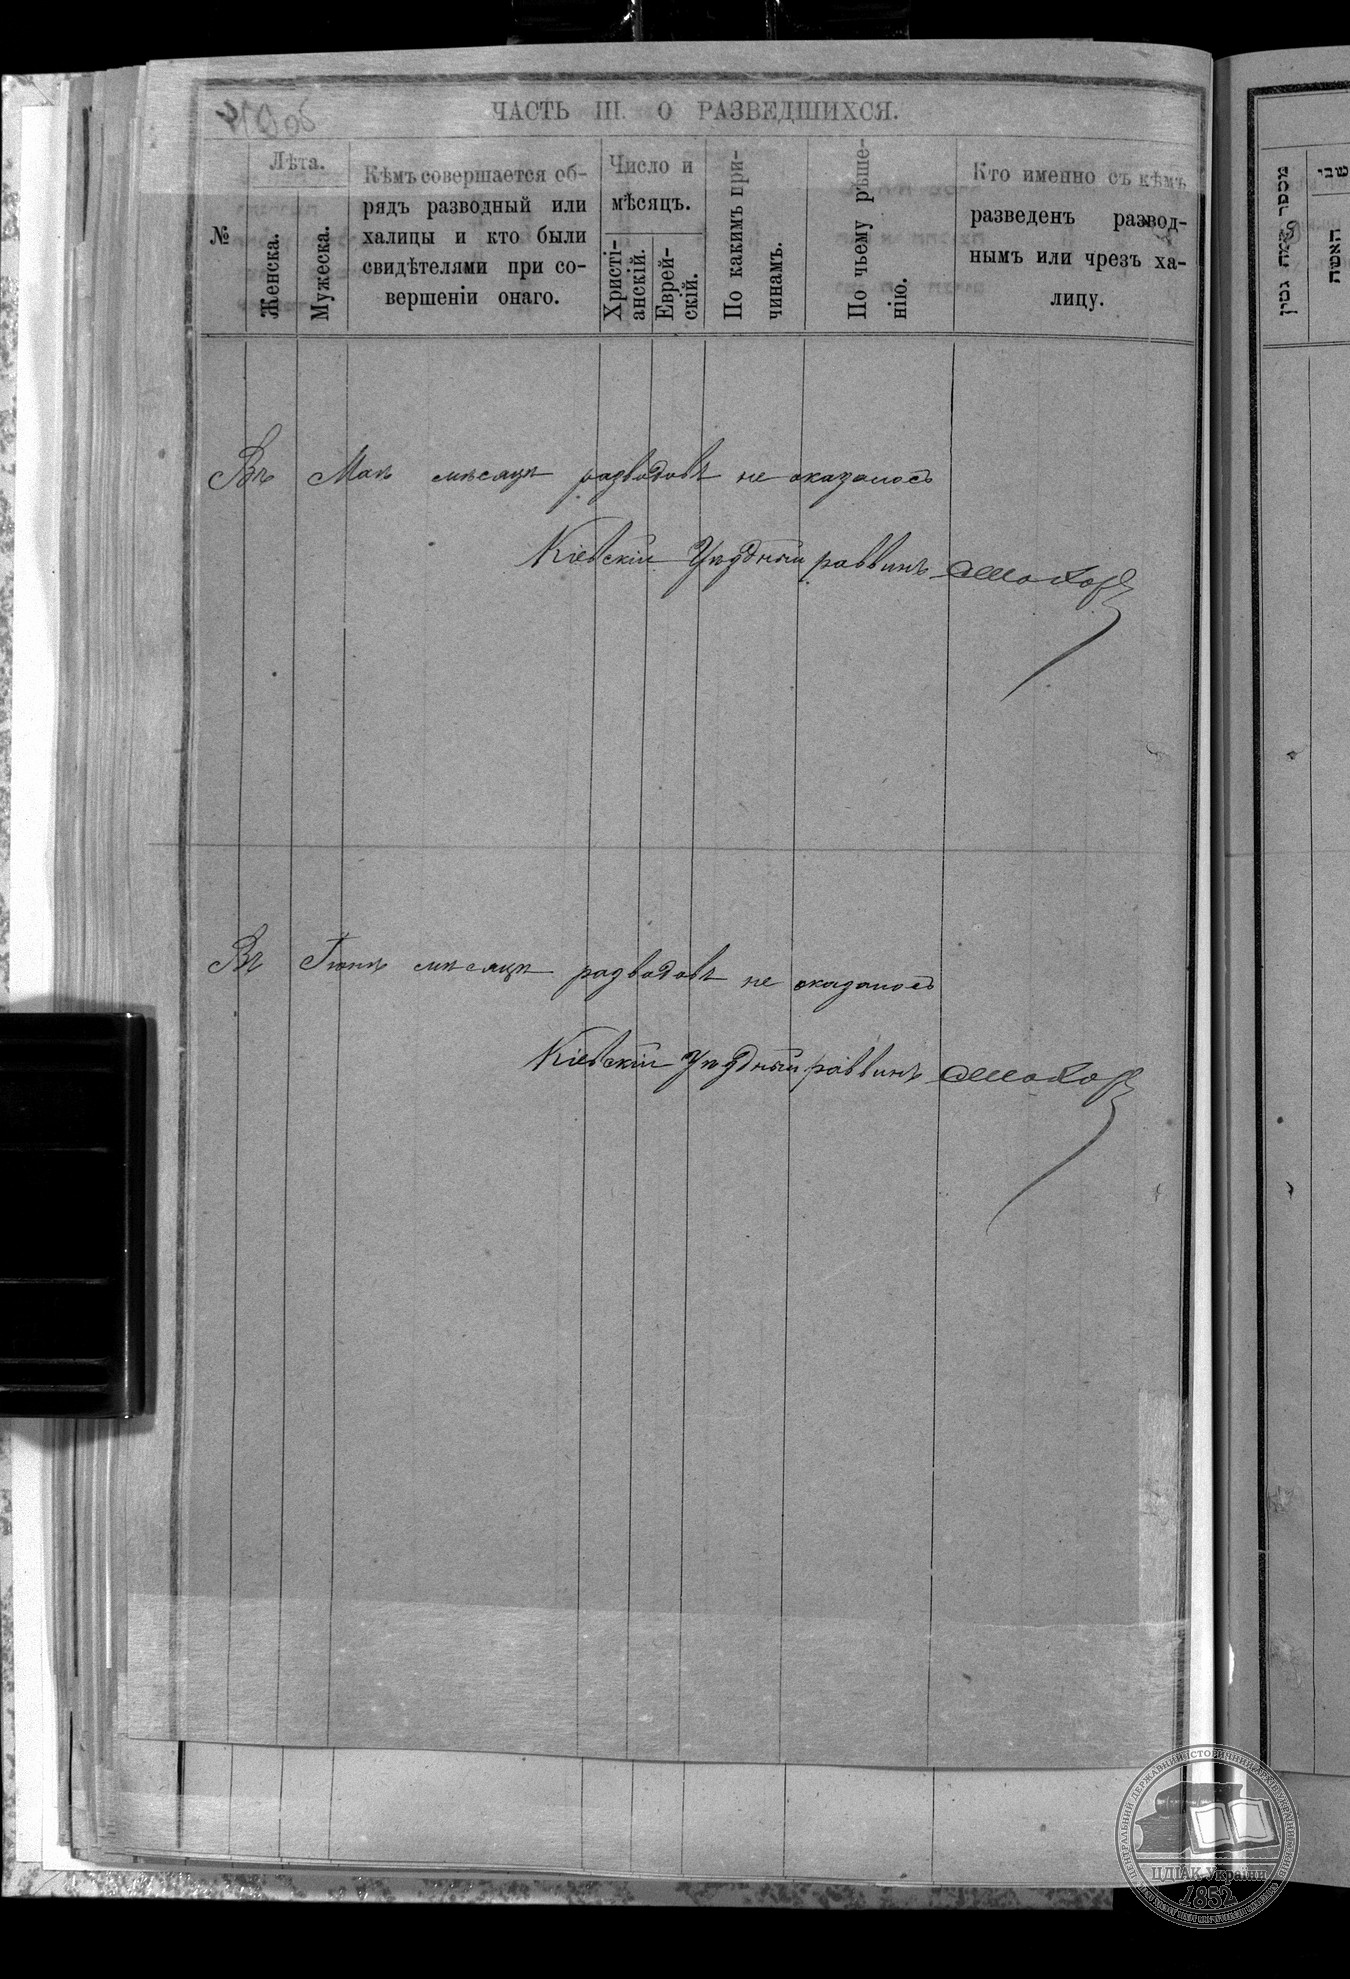 ЧАСТЬ III. О РАЗВЕДШИХСЯ.
№
Лѣта.
Женска.
Мужеска.
Кѣмъ совершается об-
рядъ разводный или
халицы и кто были
свидѣтелями при со-
вершеніи онаго.
Число и
мѣсяцъ.
Христі-
анскій.
Еврей-
скій.
По какимъ при-
чинамъ.
По чьему рѣше-
нію.
Кто именно съ кѣмъ
разведенъ развод-
нымъ или чрезъ ха-
лицу.
Въ Маѣ мѣсяцѣ разводовъ не оказалось
Кіевскій Уѣздный раввинъ
Въ Іюнѣ мѣсяцѣ разводовъ не оказалось
Кіевскій Уѣздный раввинъ
האשה
ЦДІАК України
1852